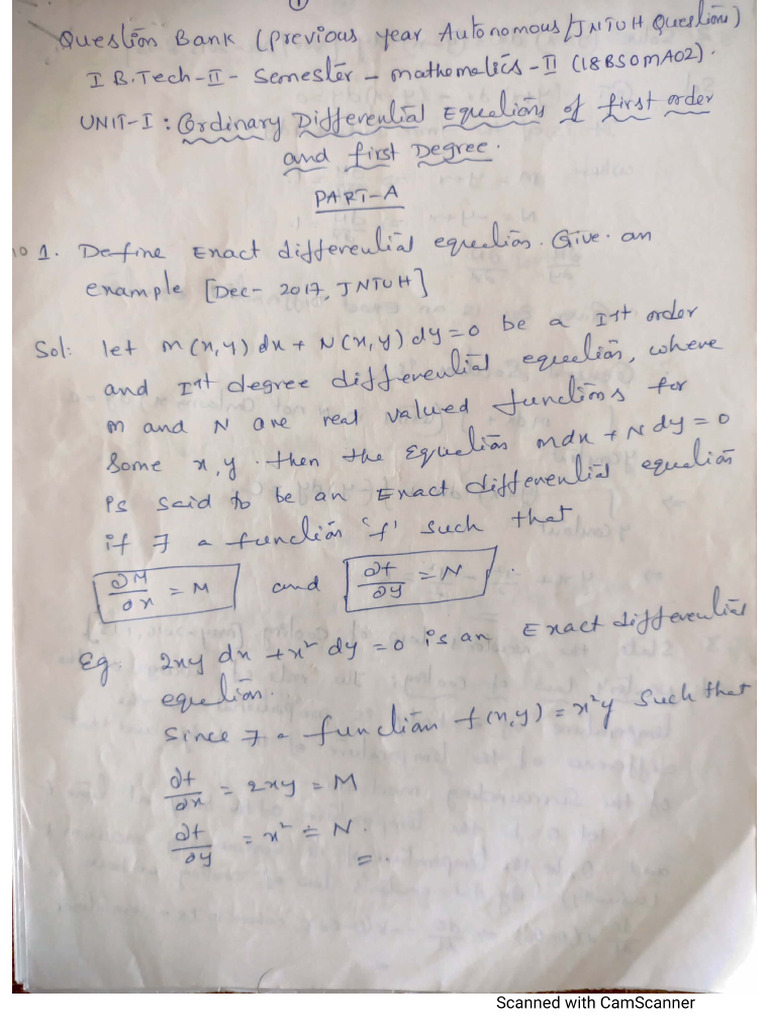 1
Question Bank (previous year Autonomous/JNTUH Questions)
I B.Tech-II- Semester - mathematics-II (18BS0MA02).
UNIT-I: Ordinary Differential Equations of first order
and first Degree.
PART-A
10 1. Define Exact differential equation. Give an
example [Dec- 2017, JNTUH]
Sol: let M(x,y) dx + N(x,y) dy = 0 be a Ist order
and Ist degree differential equation, where
M and N are real valued functions for
some x,y. then the equation mdx + N dy = 0
is said to be an Exact differential equation
if ∃ a function 'f' such that
∂M/∂x = M and ∂f/∂y = N.
Eg: 2xy dx + x² dy = 0 is an Exact differential
equation.
Since ∃ a function f(x,y) = x²y such that
∂f/∂x = 2xy = M
∂f/∂y = x² = N.
Scanned with CamScanner